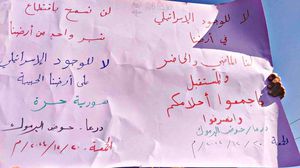 لا للوجود الإسرائيلي
في أرضنا
لنا الماضي والحاضر
والمستقبل
واجمعوا أحلامكم
وانصرفوا
درعا / حوض اليرموك
الجمعة
لن نسمح باقتطاع
شبر واحد من أرضنا
لا للوجود الإسرائيلي
على أرضنا الحبيبة
سورية حرة
درعا. حوض اليرموك
الجمعة ٢٠/١٢/٢٠٢٤ م